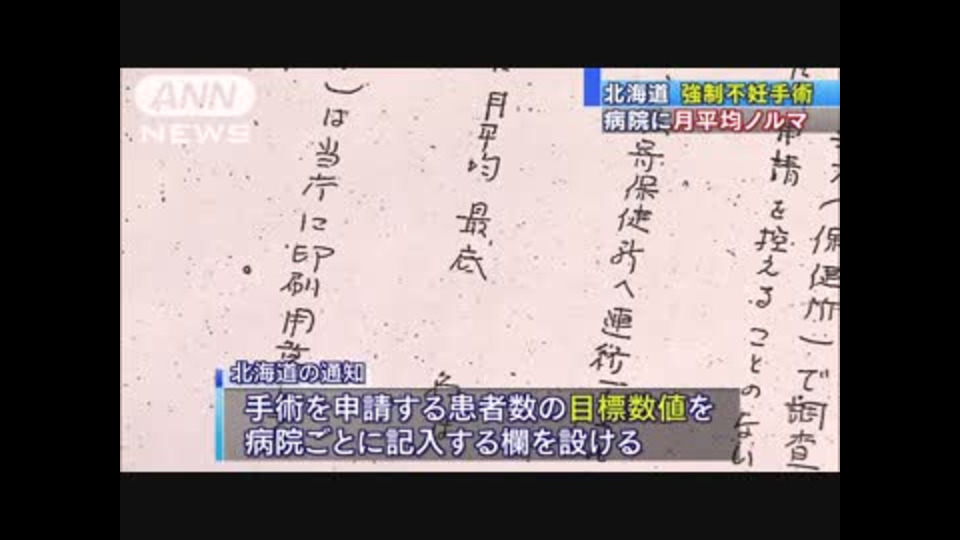 ANN
NEWS
北海道 強制不妊手術
病院に月平均ノルマ
申請を控えることのない
(保健所)で調査
寄保健所へ連絡
月平均 最底
)は当庁に印刷用
北海道の通知
手術を申請する患者数の目標数値を
病院ごとに記入する欄を設ける